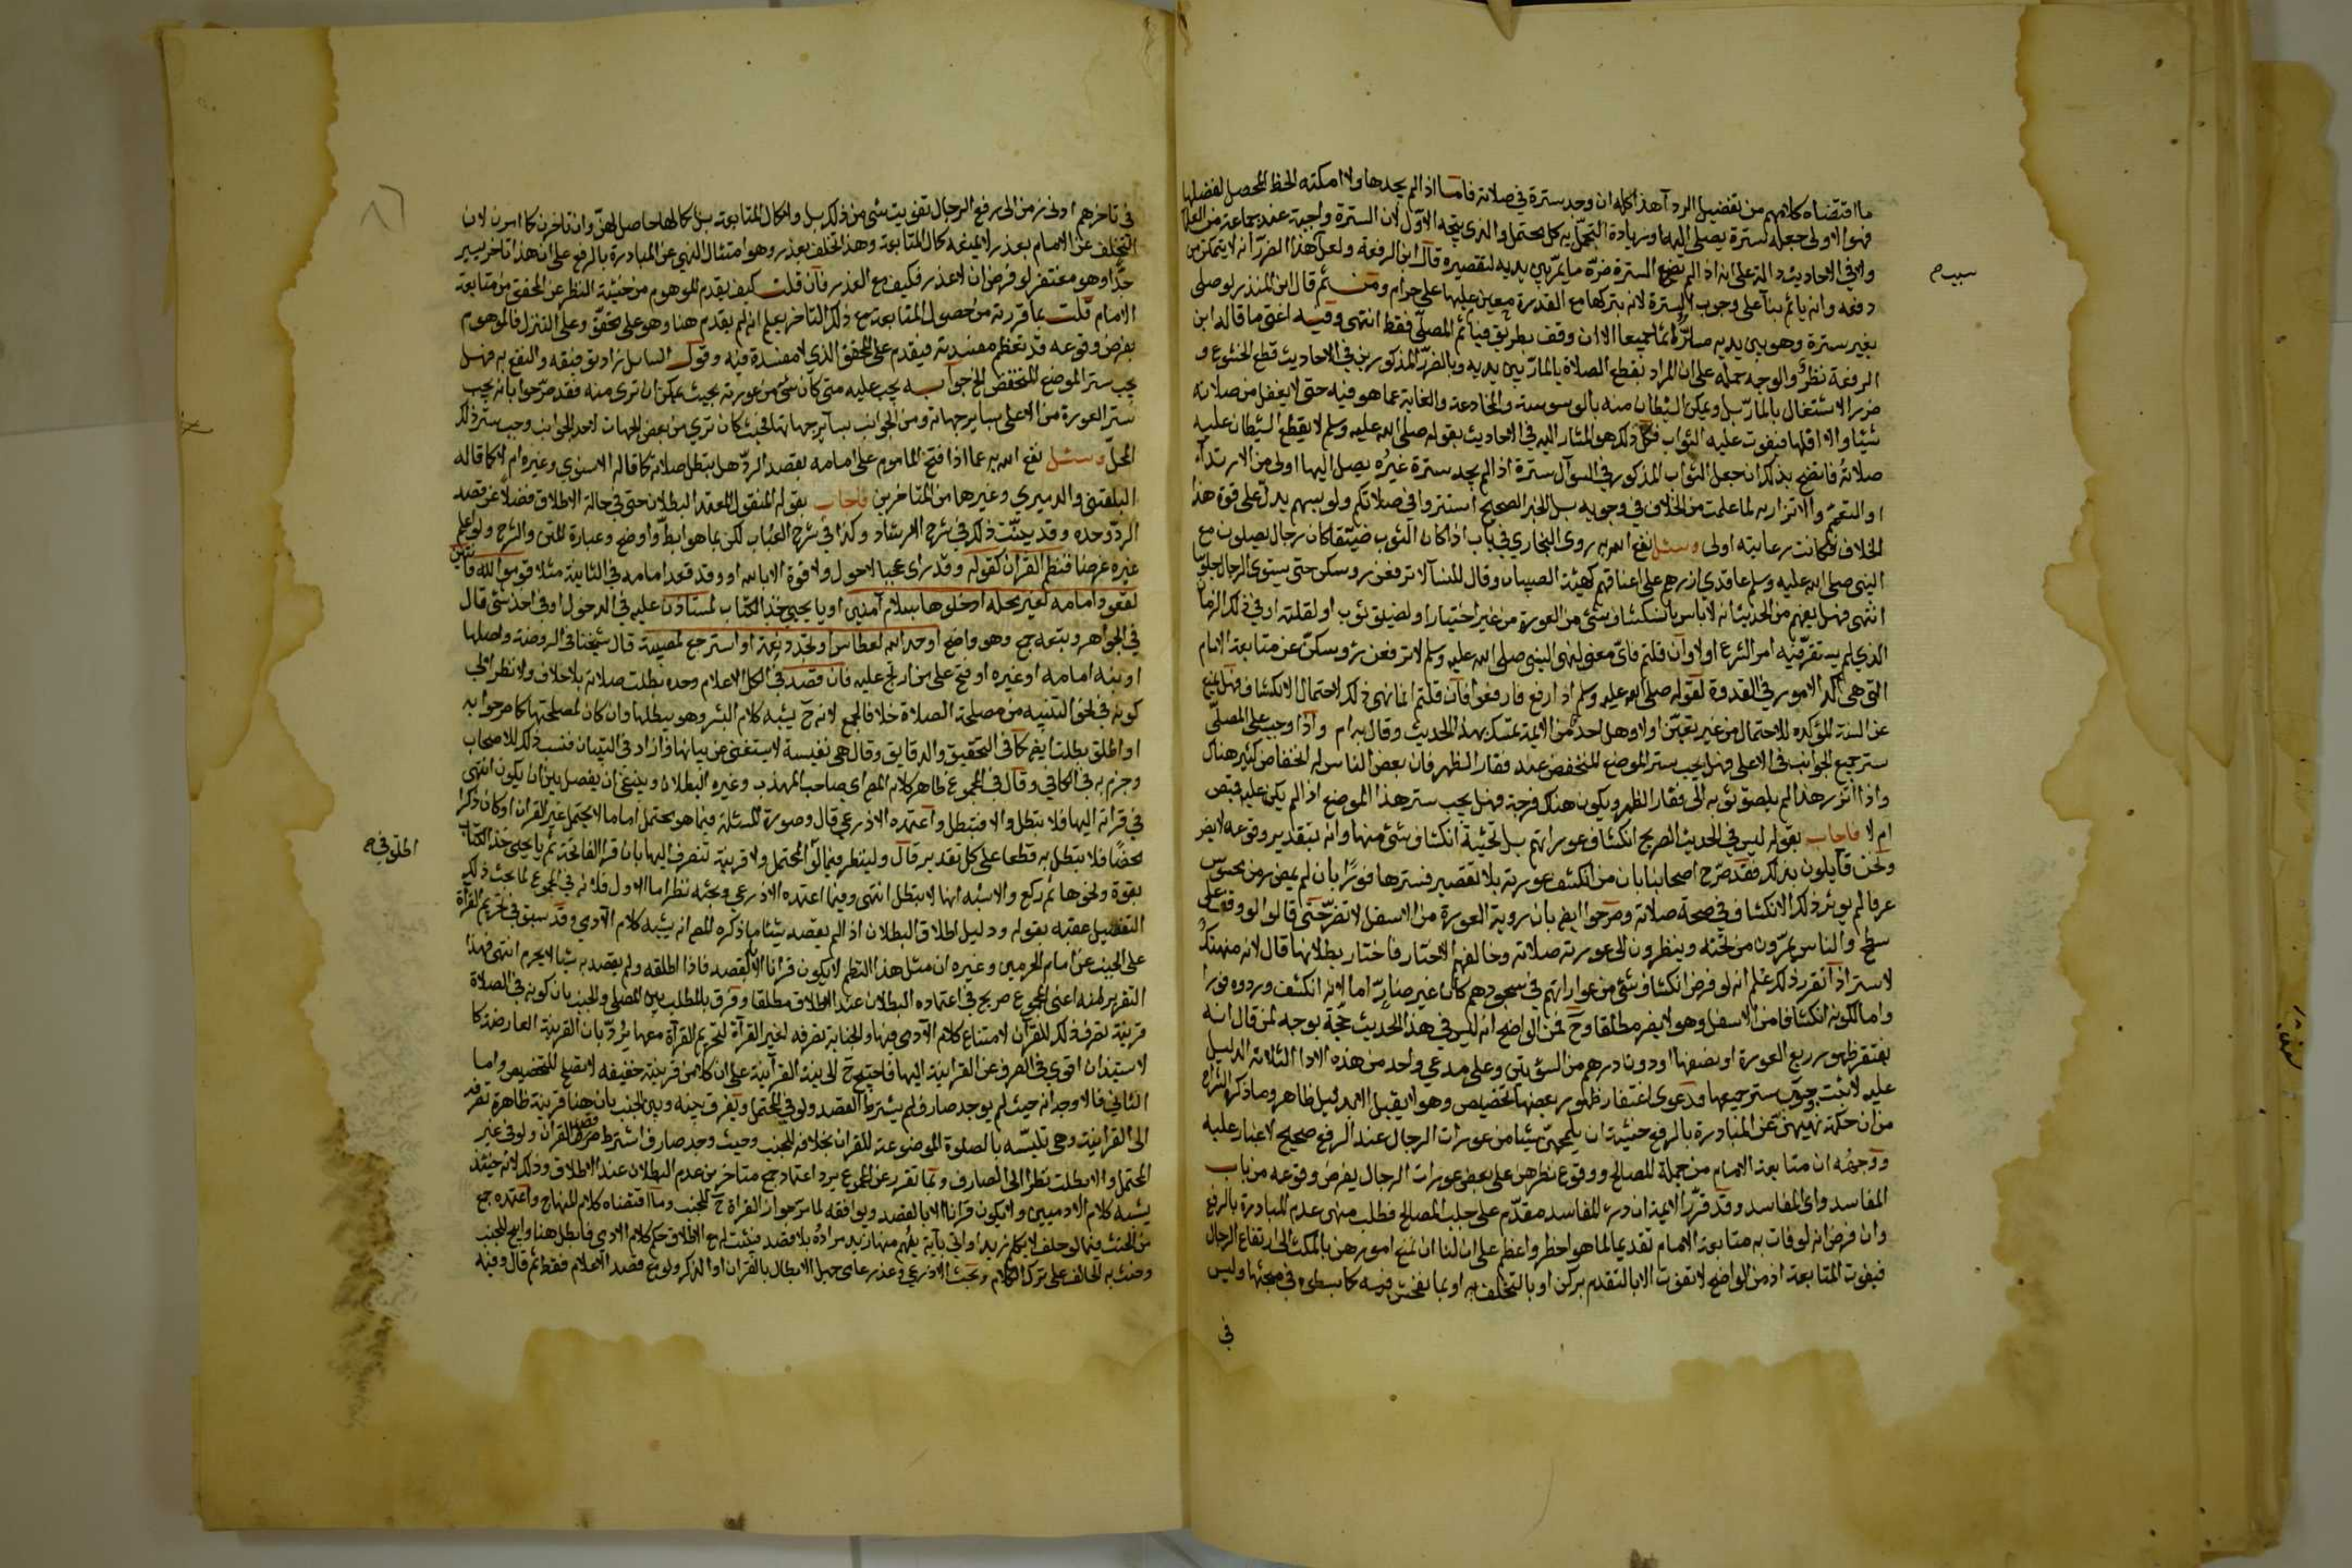 ما اقتضاه كلامهم من تفضيل الردآ هذا كله ان وجد سترة في صلاته فاما اذا لم يجدها ولا امكنه الحظ المحصل لفضلها
فهو الاولى جعله سترة يصلي اليها وزيادة التجمل به كل محتمل والذي يتجه الاول لان السترة واجبة عند جماعة من العلما
وفي الاحاديث دالة على انه اذا لم يضع السترة ضره ما يمر بين يديه لتقصيره قال ابن الرفعة ولعل هذا الضرر انه لا يتمكن من
دفعه وانه ياثم بنآ على وجوب السترة لانه بتركها مع القدرة معين عليها على حرام ومن ثم قال ابن المنذر لو صلى
بغير سترة وهو بين يديه مار اثما جميعا الا ان وقف بطريق فياثم المصلي فقط انتهى وفيه اعني ما قاله ابن
الرفعة نظر والوجه حمله على ان المراد بقطع الصلاة بالمار بين يديه وبالضرر المذكورين في الاحاديث قطع الخشوع و
ضرر الاشتغال بالمار بل وتمكن الشيطان منه بالوسوسة والمخادعة والغاية عما هو فيه حتى لا يعقل من صلاته
شيئا والا اقلها فيفوت عليه الثواب فكل ذلك هو المشار اليه في الاحاديث بقوله صلى الله عليه وسلم لا يقطع الشيطان عليه
صلاته فاتضح بذلك ان جعل الثواب المذكور في السوآل سترة اذا لم يجد سترة غيره يصلي اليها اولى من الارتدآء
او التعمم والاتزار به لما علمت من الخلاف في وجوبه بل الخبر الصحيح استتروا في صلاتكم ولو بسهم يدل على قوة هذا
الخلاف فكانت رعايته اولى وسئل نفع الله به روى البخاري في باب اذا كان الثوب ضيقا كان رجال يصلون مع
النبي صلى الله عليه وسلم عاقدي ازرهم على اعناقهم كهيئة الصبيان وقال للنسآ لا ترفعن رؤسكن حتى يستوي الرجال جلوسا
انتهى فهل يفهم من الحديث انه لا باس بانكشاف شئ من العورة من غير اختيار او لضيق ثوب او لقلته او في ذلك الزمان
الذي لم يستقر فيه امر الشرع اولا وان قلتم فاي معنى لنهي النبي صلى الله عليه وسلم لا ترفعن رؤسكن عن متابعة الامام
التي هي آكد الامور في القدوة لقوله صلى الله عليه وسلم اذا رفع فارفعوا فان قلتم انما نهى ذلك لاحتمال الانكشاف فهل يمنع
عن السنة المؤكدة للاحتمال من غير تعين اولا وهل احد من الايمة تمسك بهذا الحديث وقال به ام واذا وجب على المصلي
ستر جميع الجوانب في الاعلى فهل يجب ستر الموضع المنخفض عند فقار الظهر فان بعض الناس له انخفاض كثير هناك
واذا اتزر هذا لم يلصق ثوبه الى فقار الظهر ويكون هناك فرجة فهل يجب ستر هذا الموضع اذا لم يكن عليه قميص
ام لا فاجاب بقوله ليس في الحديث الصريح انكشاف عوراتهم بل خشية انكشاف شئ منها وانه بتقدير وقوعه لا يضر
ونحن قايلون بذلك فقد صرح اصحابنا بان من انكشف عورته بلا تقصير فسترها فورا بان لم يمض زمن محسوس
عرفا لم يوثر ذلك الانكشاف في صحة صلاته وصرحوا ايضا بان روية العورة من الاسفل لا تضر حتى قالوا لو وقف على
سطح والناس يمرون من تحته وينظرون الى عورته صلاته وخالفهم الاختار فاختار بطلانها قال لانه منهتك
لاستر اذا تقرر ذلك علم انه لو فرض انكشاف شئ من عوراتهم في سجودهم كان غير ضار اما لانه انكشف وردوه فورا
واما لكونه انكشافا من الاسفل وهو لا يضر مطلقا وح فمن الواضح انه ليس في هذا الحديث حجة بوجه لمن قال انه
يغتفر ظهور ربع العورة او نصفها او دون درهم من السوئتين وعلى مدعي واحد من هذه الارا الثلاثة الدليل
عليه لان ثبت وجوب ستر جميعها فدعوى اغتفار ظهور بعضها تخصيص وهو لا يقبل الا بدليل ظاهر وما ذكره الشراح
من ان حكمة نهيهن عن المبادرة بالرفع خشية ان يلمحن شيئا من عورات الرجال عند الرفع صحيح لا غبار عليه
ووجهه ان متابعة الامام من جملة المصالح ووقوع نظرهن على بعض عورات الرجال بفرض وقوعه من باب
المفاسد واي المفاسد وقد قرر الايمة ان درء المفاسد مقدم على جلب المصالح فطلب منهن عدم المبادرة بالرفع
وان فرض انه لو فات به متابعة الامام تقديما لما هو اخطر واعظم على ان لنا ان نمنع امورهن بالمكث الى ارتفاع الرجال
فيفوت المتابعة اذ من الواضح لا تفوت الا بالتقدم بركن او بالتخلف به او بما يفحش فيه كما بسط في محثها وليس
في
سيد م
في تاخرهم ادنى زمن الى رفع الرجال تفويت شئ من ذلك بل وامكان المتابعة بل كالها حاصل لهن وان تاخرن كما امرن لان
التخلف عن الامام بعذر لا يمنع كمال المتابعة وهذا التخلف بعذر وهو امتثال النهي عن المبادرة بالرفع على ان هذا تاخر يسير
جدا وهو مغتفر لو فرض ان لا عذر فكيف مع العذر فان قلت كيف يقدم الموهوم من خشية النظر عن المحقق من متابعة
الامام قلت بما قررته من حصول المتابعة مع ذلك التاخر يعلم انه لم يقدم هنا وهو على محقق وعلى التنزل فالموهوم
بفرض وقوعه قد تعظم مفسدته فيقدم على المحقق الذي لا مفسدة فيه وقول السايل زاد توفيقه والنفع به فهل
يجب ستر الموضع المنخفض الخ جوابه يجب عليه متى كان شئ من عورته بحيث يمكن ان ترى منه فقد صرحوا بانه يجب
ستر العورة من الاعلى بساير جهاته ومن الجوانب بساير جهاتها فحيث كان ترى من بعض الجهات لاحد الجوانب وجب ستر ذلك
المحل وسئل نفع الله به عما اذا فتح الماموم على امامه بقصد الرد هل تبطل صلاته كما قاله الاسنوي وغيره ام لا كما قاله
البلقيني والدميري وغيرهما من المتاخرين فاجاب بقوله المنقول المعتمد البطلان حتى في حالة الاطلاق فضلا عن قصد
الرد وحده وقد بينت ذلك في شرح الارشاد وكذا في شرح العباب لكن بما هو ابسط واوضح وعبارة المتن والشرح ولو اعلم
غيره غرضا فنظم القران كقوله وقد راى عجبا لا حول ولا قوة الا بالله او وقد قعد امامه في الثانية مثلا قوموا لله قانتين
لقعود امامه لغير محله ادخلوها بسلام آمنين او يا يحيى خذ الكتاب لمستاذن عليه في الدخول او في اخذ شئ قال
في الجواهر وتبعه جمع وهو واضح او حمد الله لعطاس او تجدد نعمة او استرجع لمصيبة قال شيخنا في الروضة واصلها
او نبه امامه او غيره او فتح على من ارتج عليه فان قصد في الكل الاعلام وحده بطلت صلاته بلا خلاف ولا نظر الى
كونه في نحو التنبيه من مصلحة الصلاة خلافا لجمع لانه ح يشبه كلام البشر وهو يبطلها وان كان لمصلحتها كما صرحوا به
او اطلق بطلت ايضا كما في التحقيق والدقايق وقال هي نفيسة لا يستغنى عن بيانها وزاد في التبيان فنسب ذلك للاصحاب
وجزم به في الكافي وقال في المجموع ظاهر كلام المص اي صاحب المهذب وغيره البطلان وينبغي ان يفصل بين ان يكون انتهى
في قراته اليها فلا تبطل والا فتبطل واعتمده الاذرعي قال وصورة المسئلة فيما هو يحتمل اما ما لا يحتمل غير القران او كان ذكرا
محضا فلا تبطل به قطعا على كل تقدير قال ولينظر فيما لو المحتمل ولا قرينة تنصرف اليها بان قرا الفاتحة ثم يا يحيى خذ الكتاب
بقوة ونحوها ثم ركع والاشبه انها لا تبطل انتهى وفيما اعتمده الاذرعي وبحثه نظر اما الاول فلانه في المجموع لما بحث ذلك
التفصيل عقبه بقوله ودليل اطلاق البطلان اذا لم يقصد شيئا ما ذكره المص انه يشبه كلام الآدمي وقد سبق في تحريم القرآة
على الجنب عن امام الحرمين وغيره ان مثل هذا النظم لا يكون قرانا الا بالقصد فاذا اطلقه ولم يقصد به شيئا لا يحرم انتهى فهذا
التقرير لمنه اعني المجموع صريح في اعتماده البطلان عند الاطلاق مطلقا وفرق بالمطلب بين المصلي والجنب بان كونه في الصلاة
قرينة تصرف ذلك للقرآن لامتناع كلام الآدمي فيها والجنابة تصرفه لغير القرآة لتحريم القرآة معها يرد بان القرينة العارضة كا
لاستيذان اقوى في الصرف عن القرانية اليها فاحتيج ح الى نية القرآنية على ان كلا من قرينة خفيفة لا تصلح للتخصيص واما
الثاني فالاوجه انه حيث لم يوجد صارف لم يشترط القصد ولو في المحتمل ويفرق بينه وبين الجنب بان هنا قرينة ظاهرة تصرفه
الى القرانية وهي تلبسه بالصلوة الموضوعة للقران بخلافه للجنب وحيث وجد صارف اشترط قصد القران ولو في غير
المحتمل والا بطلت نظرا الى الصارف وبما تقرر عن المجموع يرد اعتماد جمع متاخرين عدم البطلان عند الاطلاق وذلك لانه حينئذ
يشبه كلام الادميين ولا يكون قرانا الا بالقصد ويوافقه لما مر جواز القراة ح للجنب وما اقتضاه كلام المنهاج واعتمده جمع
من الحنث فيما لو حلف لا يكلم زيدا واتى بآية يفهم منها زيد مراده بلا قصد فثبت له مع الاطلاق حكم كلام الادمي فابطل هنا وابيح للجنب
وحنث به الحالف على ترك الكلام وبحث الاذرعي وعذر عامي جهل الابطال بالقران او الذكر ولو مع قصد الاعلام فقط ثم قال وفيه
اطلق فيه